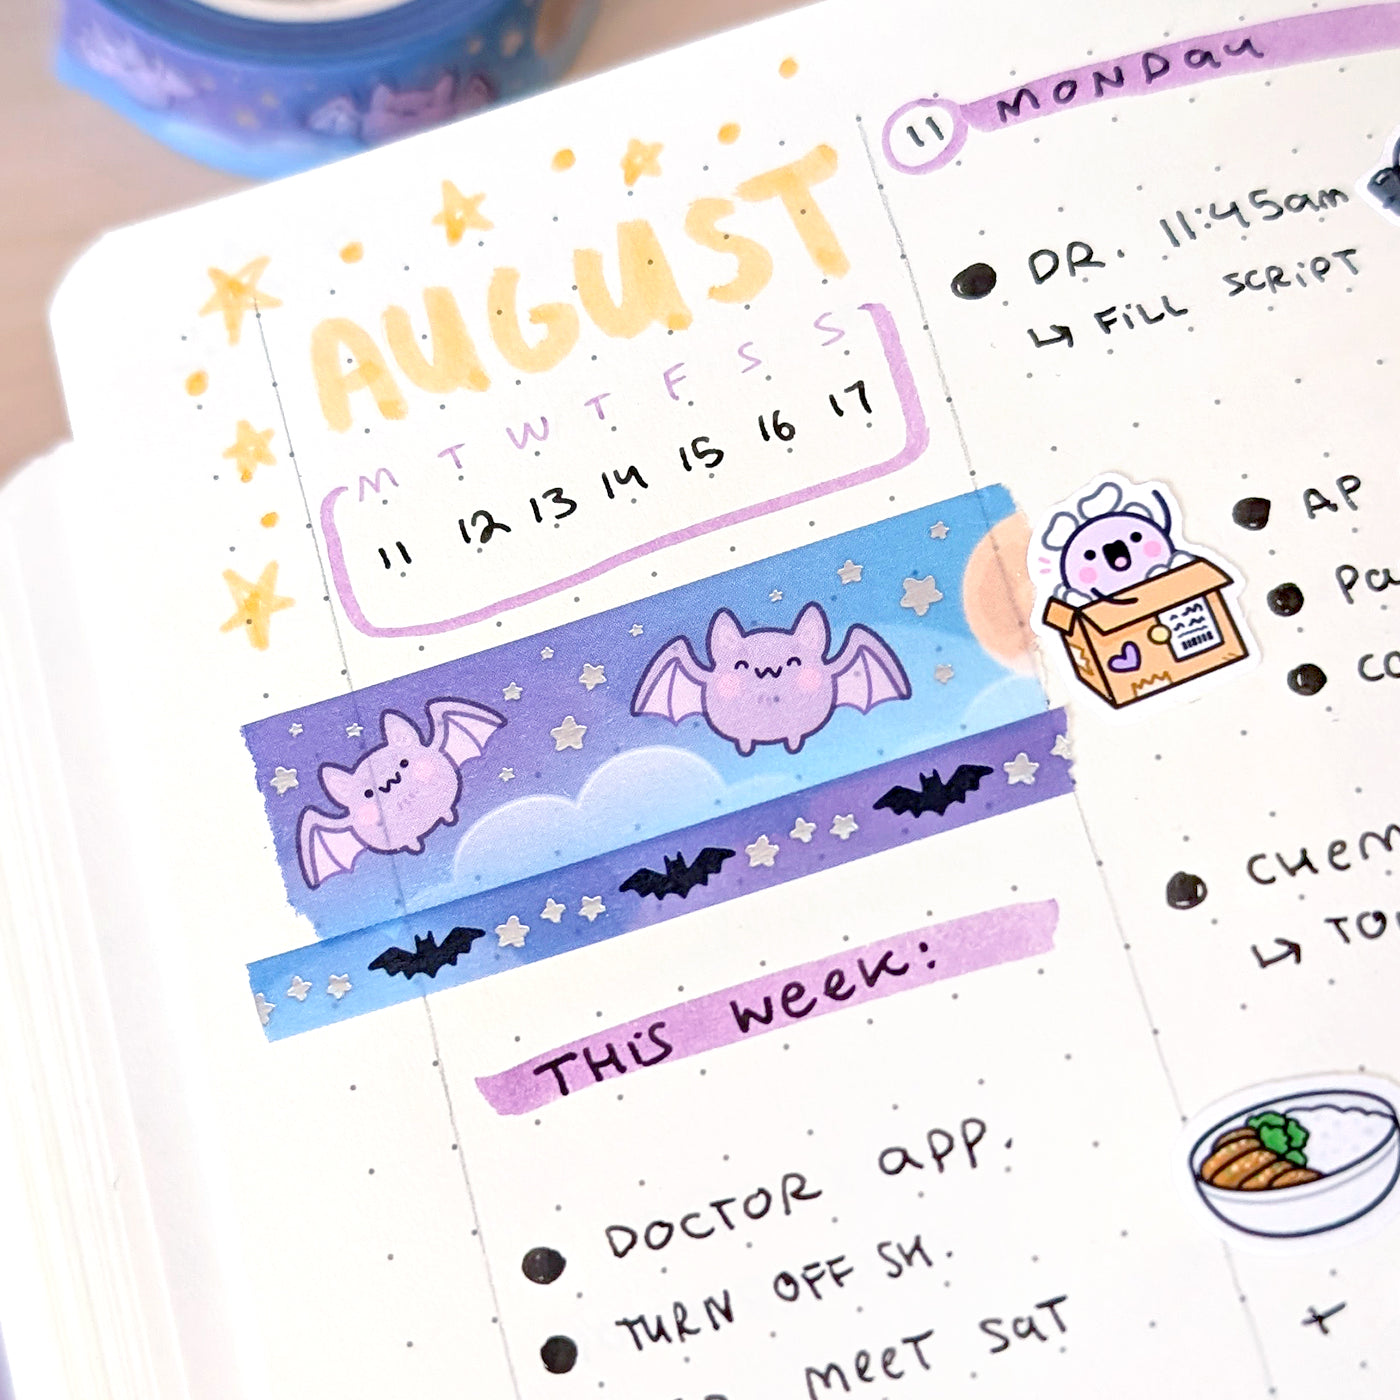 AUGUST
M T W T F S S
11 12 13 14 15 16 17
THIS WEEK:
DOCTOR APP.
TURN OFF SH.
MEET SAT
11 MONDAY
DR. 11:45am
↳ FILL SCRIPT
AP